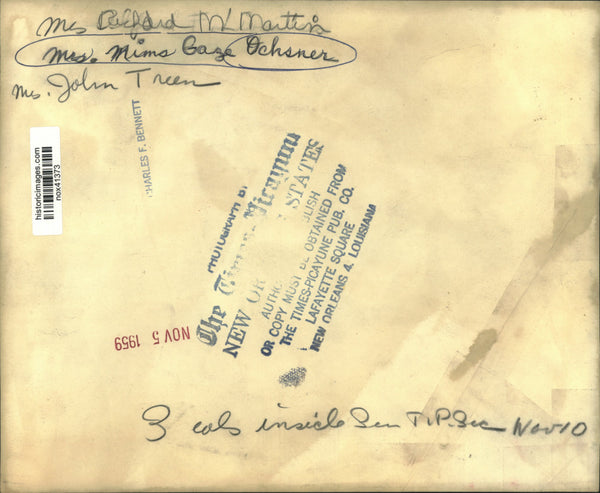 Mrs Rexford Mc Martin
Mrs. Mims Gage Ochsner
Mrs. John Treen
CHARLES F. BENNETT
historicimages.com
nox41373
PHOTOGRAPH BY
The Times-Picayune
NEW OR STATES
AUTHO LISH
OR COPY MUST BE OBTAINED FROM
THE TIMES-PICAYUNE PUB. CO.
LAFAYETTE SQUARE
NEW ORLEANS 4, LOUISIANA
NOV 5 1959
3 cols inside Sun T.P. Sec Nov 10